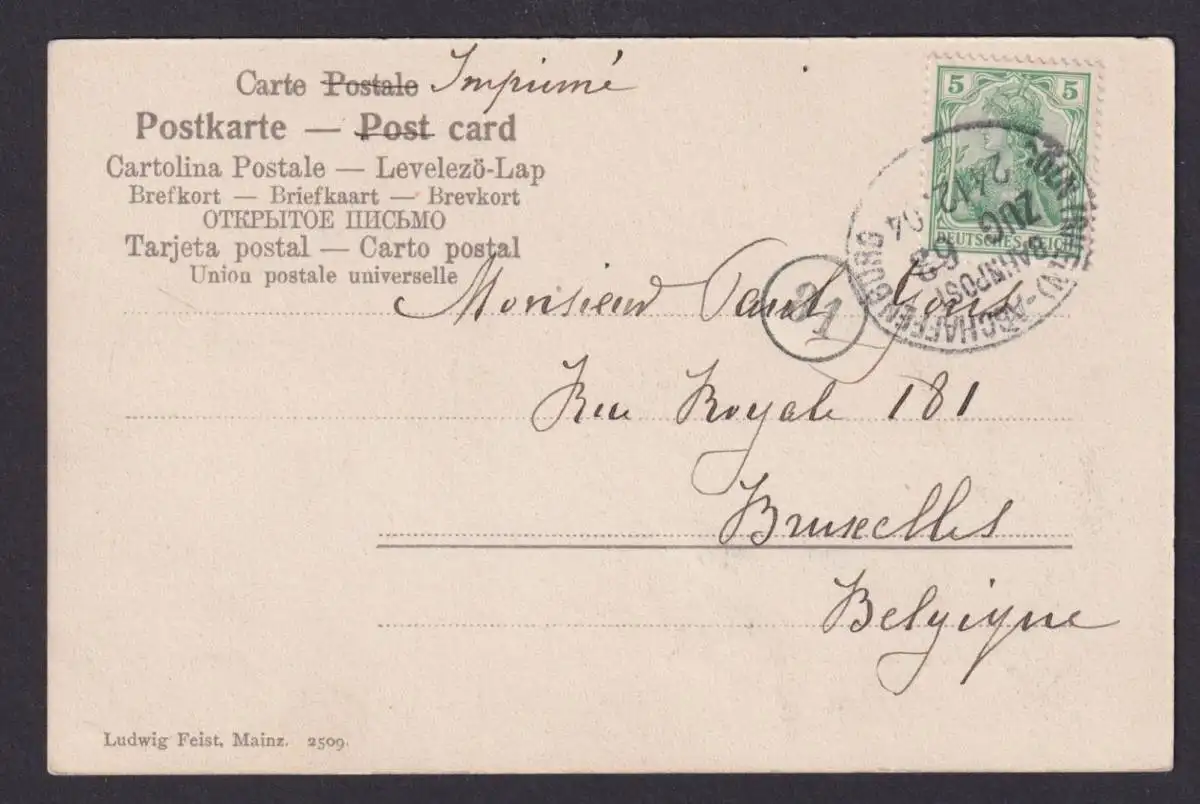 Carte Postale Imprimé
Postkarte — Post card
Cartolina Postale — Levelezö-Lap
Brefkort — Briefkaart — Brevkort
ОТКРЫТОЕ ПИСЬМО
Tarjeta postal — Carto postal
Union postale universelle
5 5
DEUTSCHES REICH
CÖLN (RHEIN)-ASCHAFFENBURG
BAHNPOST
ZUG 63
24 12 04
31
Monsieur Paul
Rue Royale 181
Bruxelles
Belgique
Ludwig Feist, Mainz. 2509.